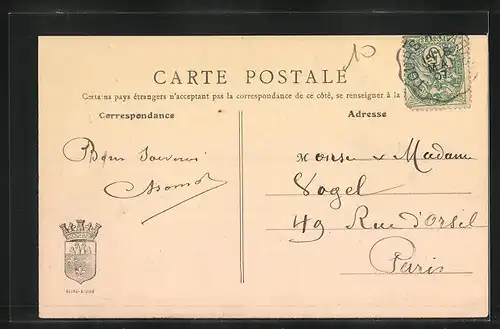 10
CARTE POSTALE
Certains pays étrangers n'acceptant pas la correspondance de ce côté, se renseigner à la
Correspondance
Adresse
Bon Souvenir
Monsieur & Madame
Vogel
49 Rue d'Orsel
Paris